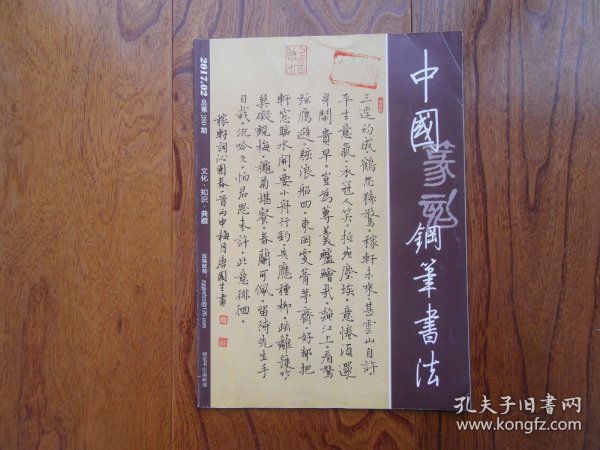 中國篆刻鋼筆書法
三逕初成·鶴怨猿驚稼軒未來·甚雲山自許
平生意氣·衣冠人笑·抵死塵埃·意倦須還
身閑貴早·豈為蓴羹鱸鱠哉·秋江上·看驚
弦雁避·駭浪船回·東岡更葺茅齋·好都把
軒窓臨水開·要小舟行釣先應種柳·疏籬護竹
莫礙觀梅·秋菊堪餐·春蘭可佩·留待先生手
自栽·沉吟久·怕君恩未許·此意徘徊·
稼軒詞沁園春一首丙申梅月唐國生書
2017.02 总第 289 期
文化·知识·典藏
孔夫子旧书网
www.kongfz.com